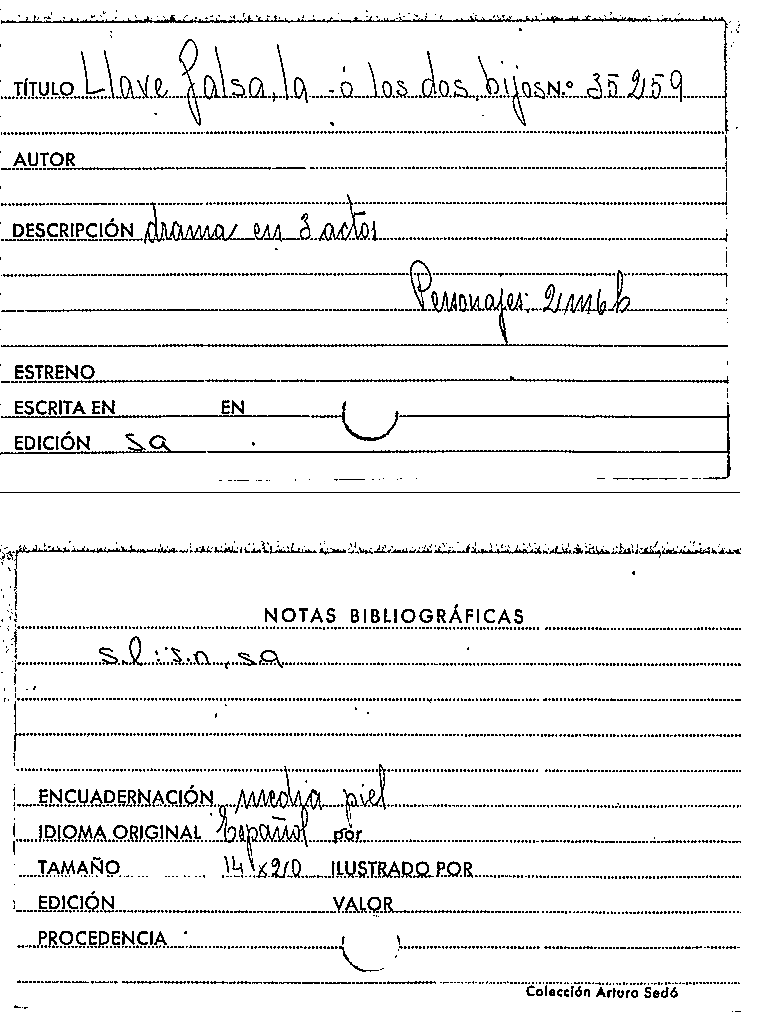 TÍTULO Llave falsa, la - ó los dos hijos N.º 35259
AUTOR
DESCRIPCIÓN drama en 3 actos
Personajes: 2m 6h
ESTRENO
ESCRITA EN EN
EDICIÓN sa
NOTAS BIBLIOGRÁFICAS
s.l : s.n, sa
ENCUADERNACIÓN media piel
IDIOMA ORIGINAL Español por
TAMAÑO 14x20 ILUSTRADO POR
EDICIÓN VALOR
PROCEDENCIA
Colección Arturo Sedó